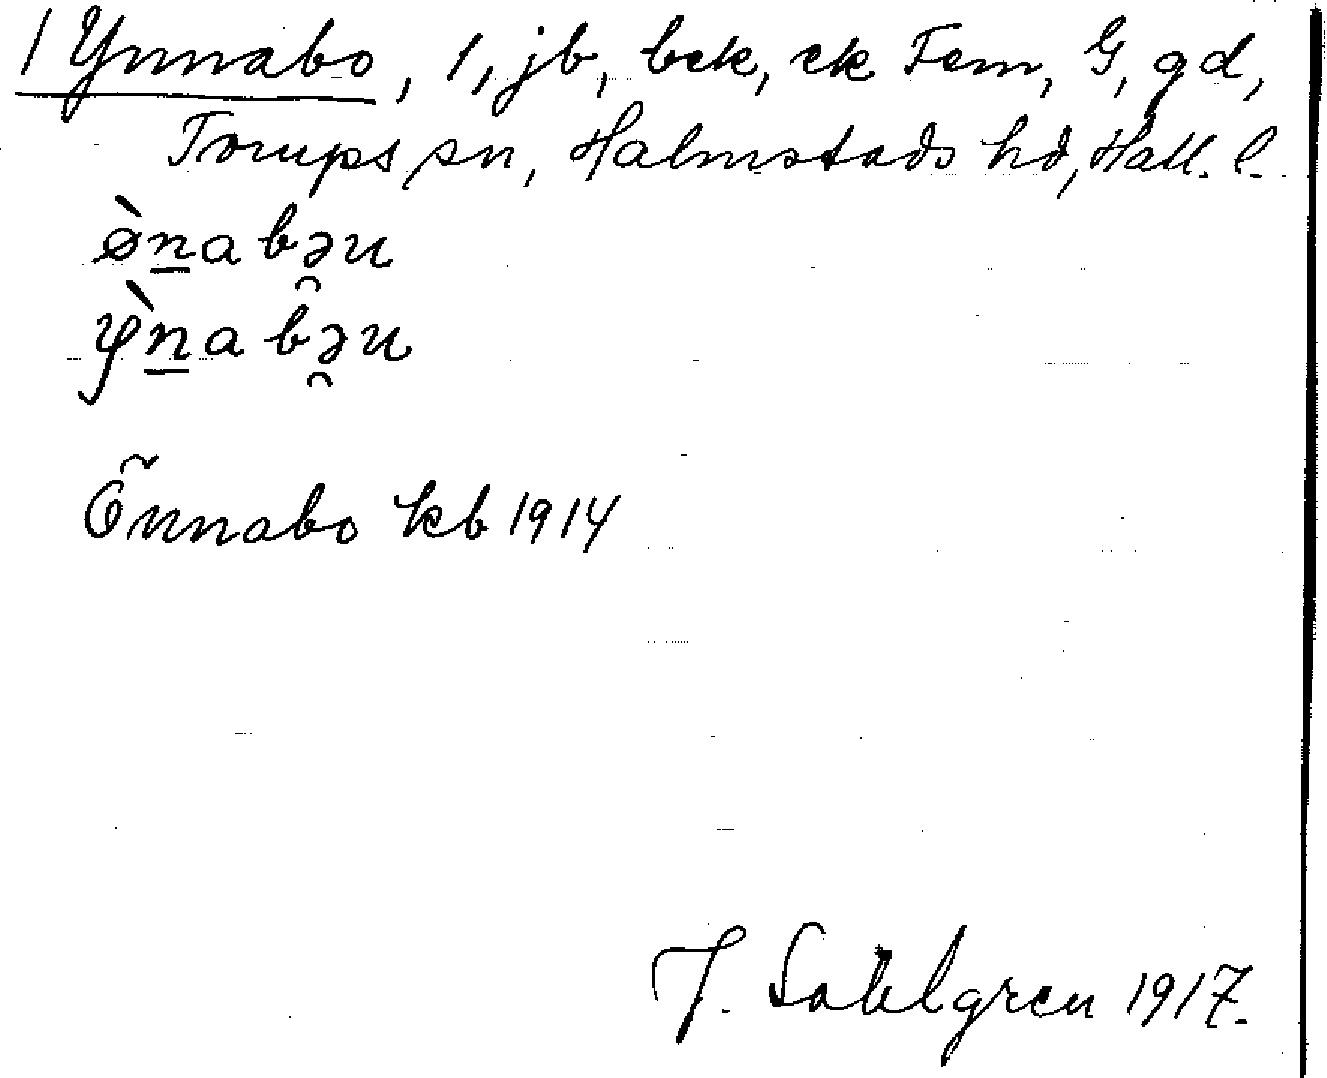 1 Ynnabo, 1, jb, bek, ek Fem, G, gd,
Torups sn, Halmstads hd, Hall. l.
ø̀n̲abə̯u
ỳn̲abə̯u
Õnnabo kb 1914
J. Sahlgren 1917.